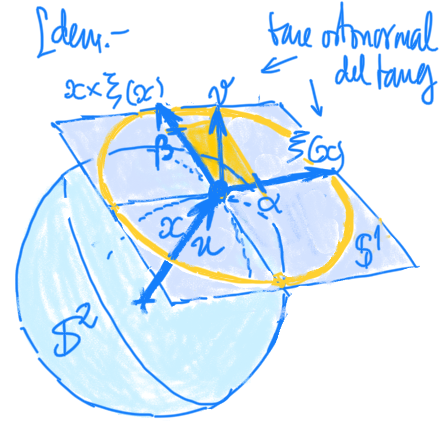 [dem.-
base ortonormal
del tang
x×ξ(x)
v
β
ξ(x)
α
x
u
𝕊¹
𝕊²